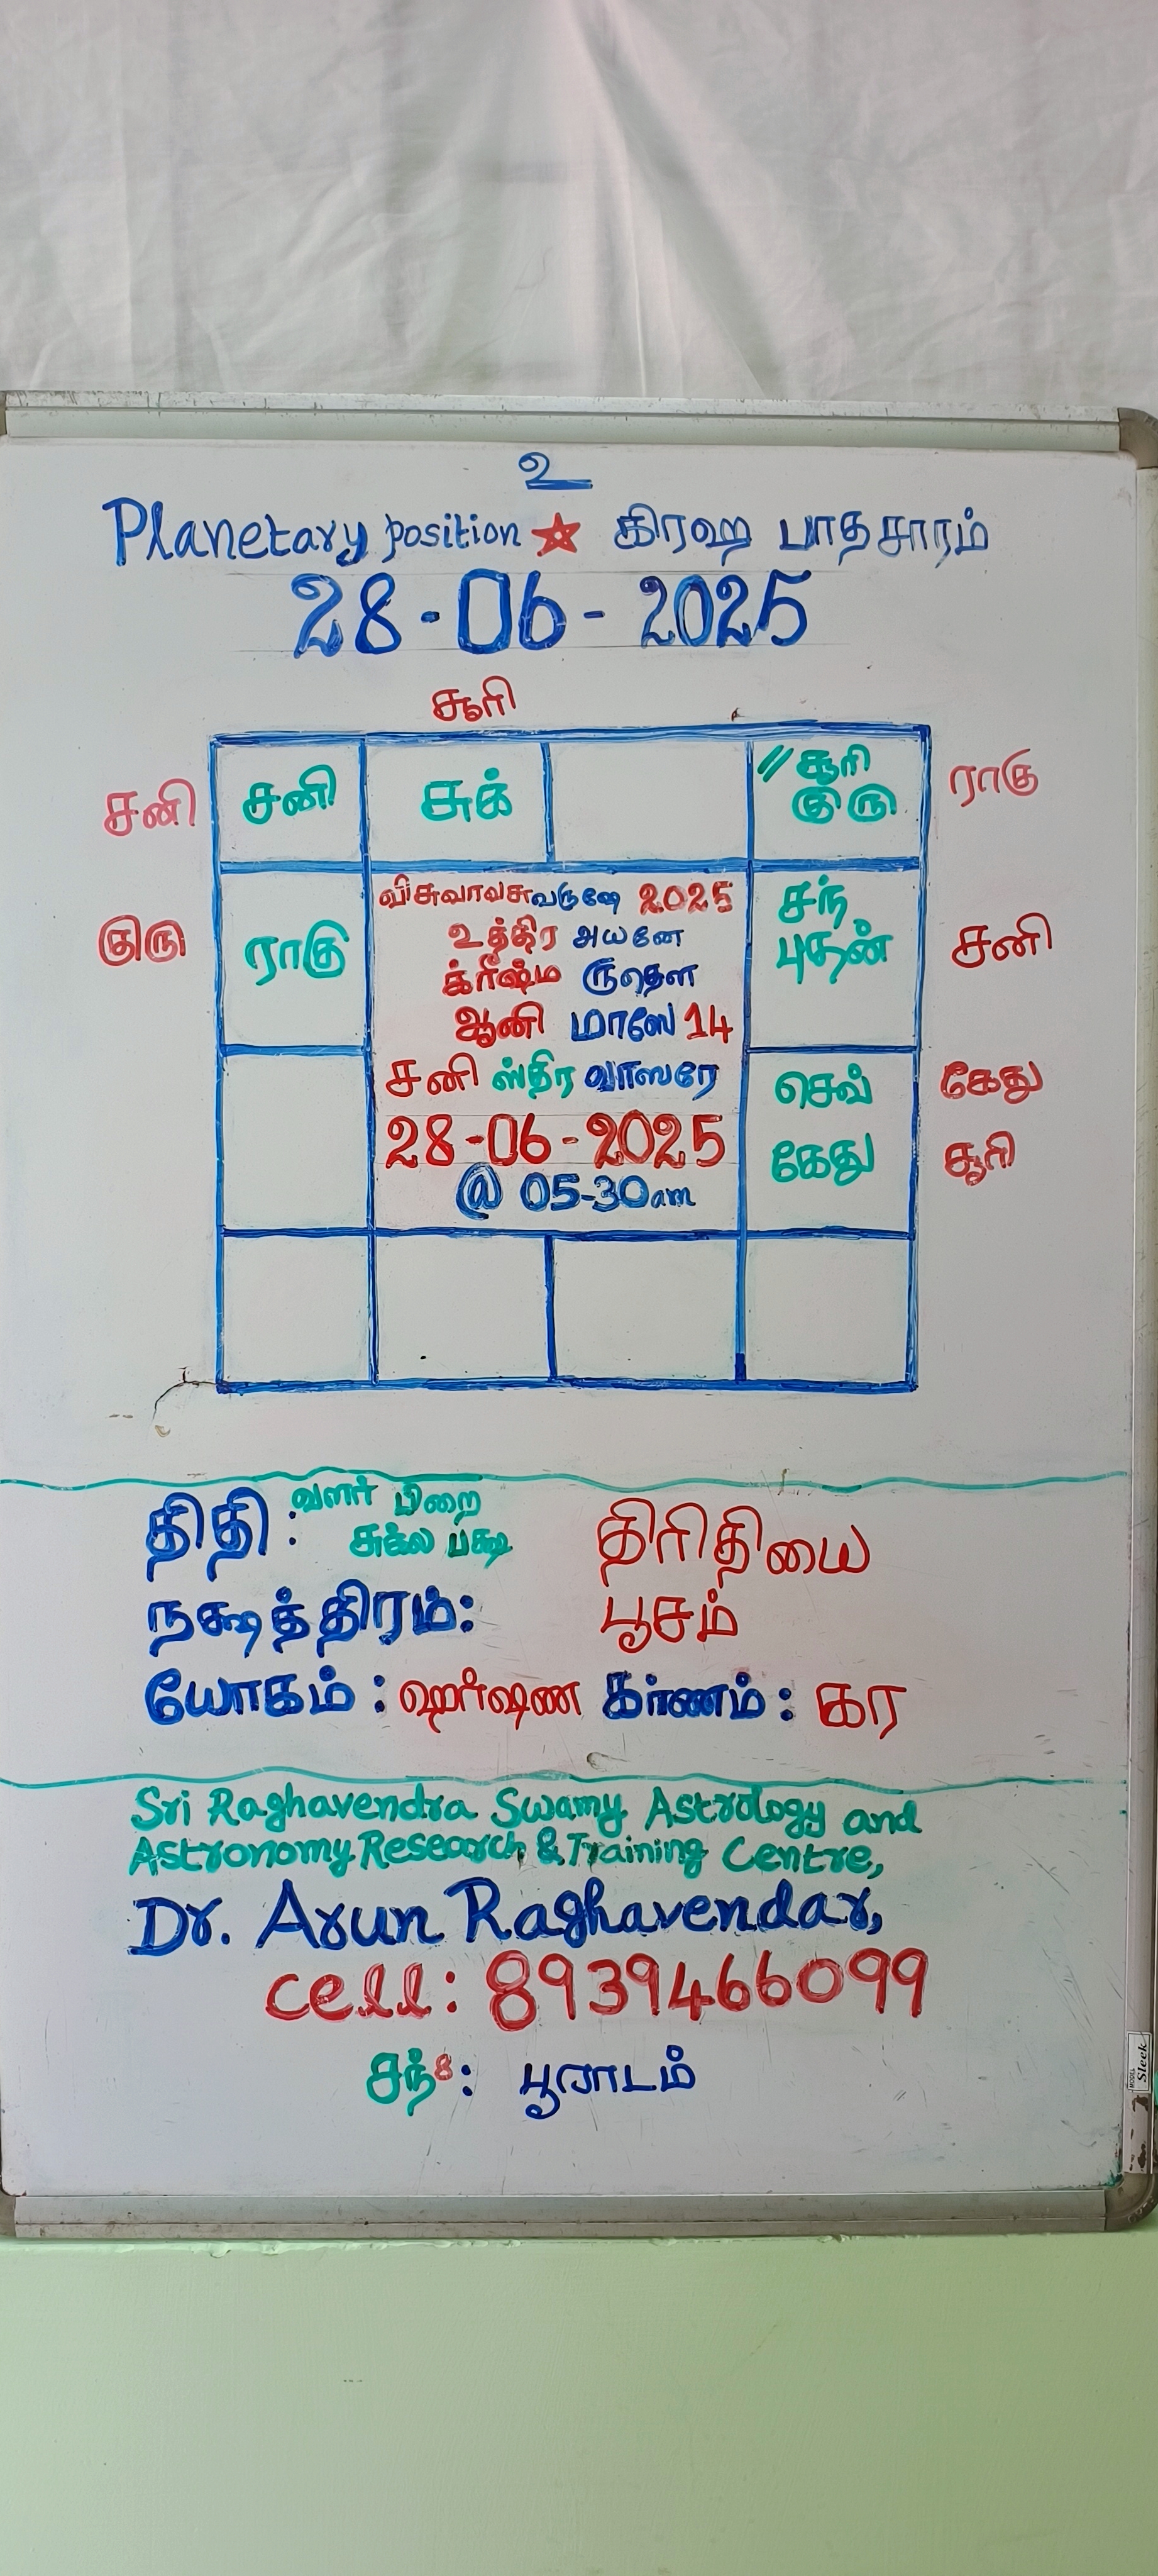 உ
Planetary position ★ கிரஹ பாதசாரம்
28-06-2025
சூரி
சனி சனி சுக் // சூரி ராகு
குரு
குரு ராகு சந் சனி
புதன்
விசுவாவசுவருஷே 2025
உத்திர அயனே
க்ரீஷ்ம ருதௌ
ஆனி மாஸே 14
சனி ஸ்திர வாஸரே
28-06-2025
@ 05-30am
செவ் கேது
கேது சூரி
திதி : வளர் பிறை திரிதியை
சுக்ல பக்ஷ
நக்ஷத்திரம்: பூசம்
யோகம் : ஹர்ஷண கர்ணம் : கர
Sri Raghavendra Swamy Astrology and
Astronomy Research & Training Centre,
Dr. Arun Raghavendar,
cell: 8939466099
சந்8: பூராடம்
MODEL Sleek